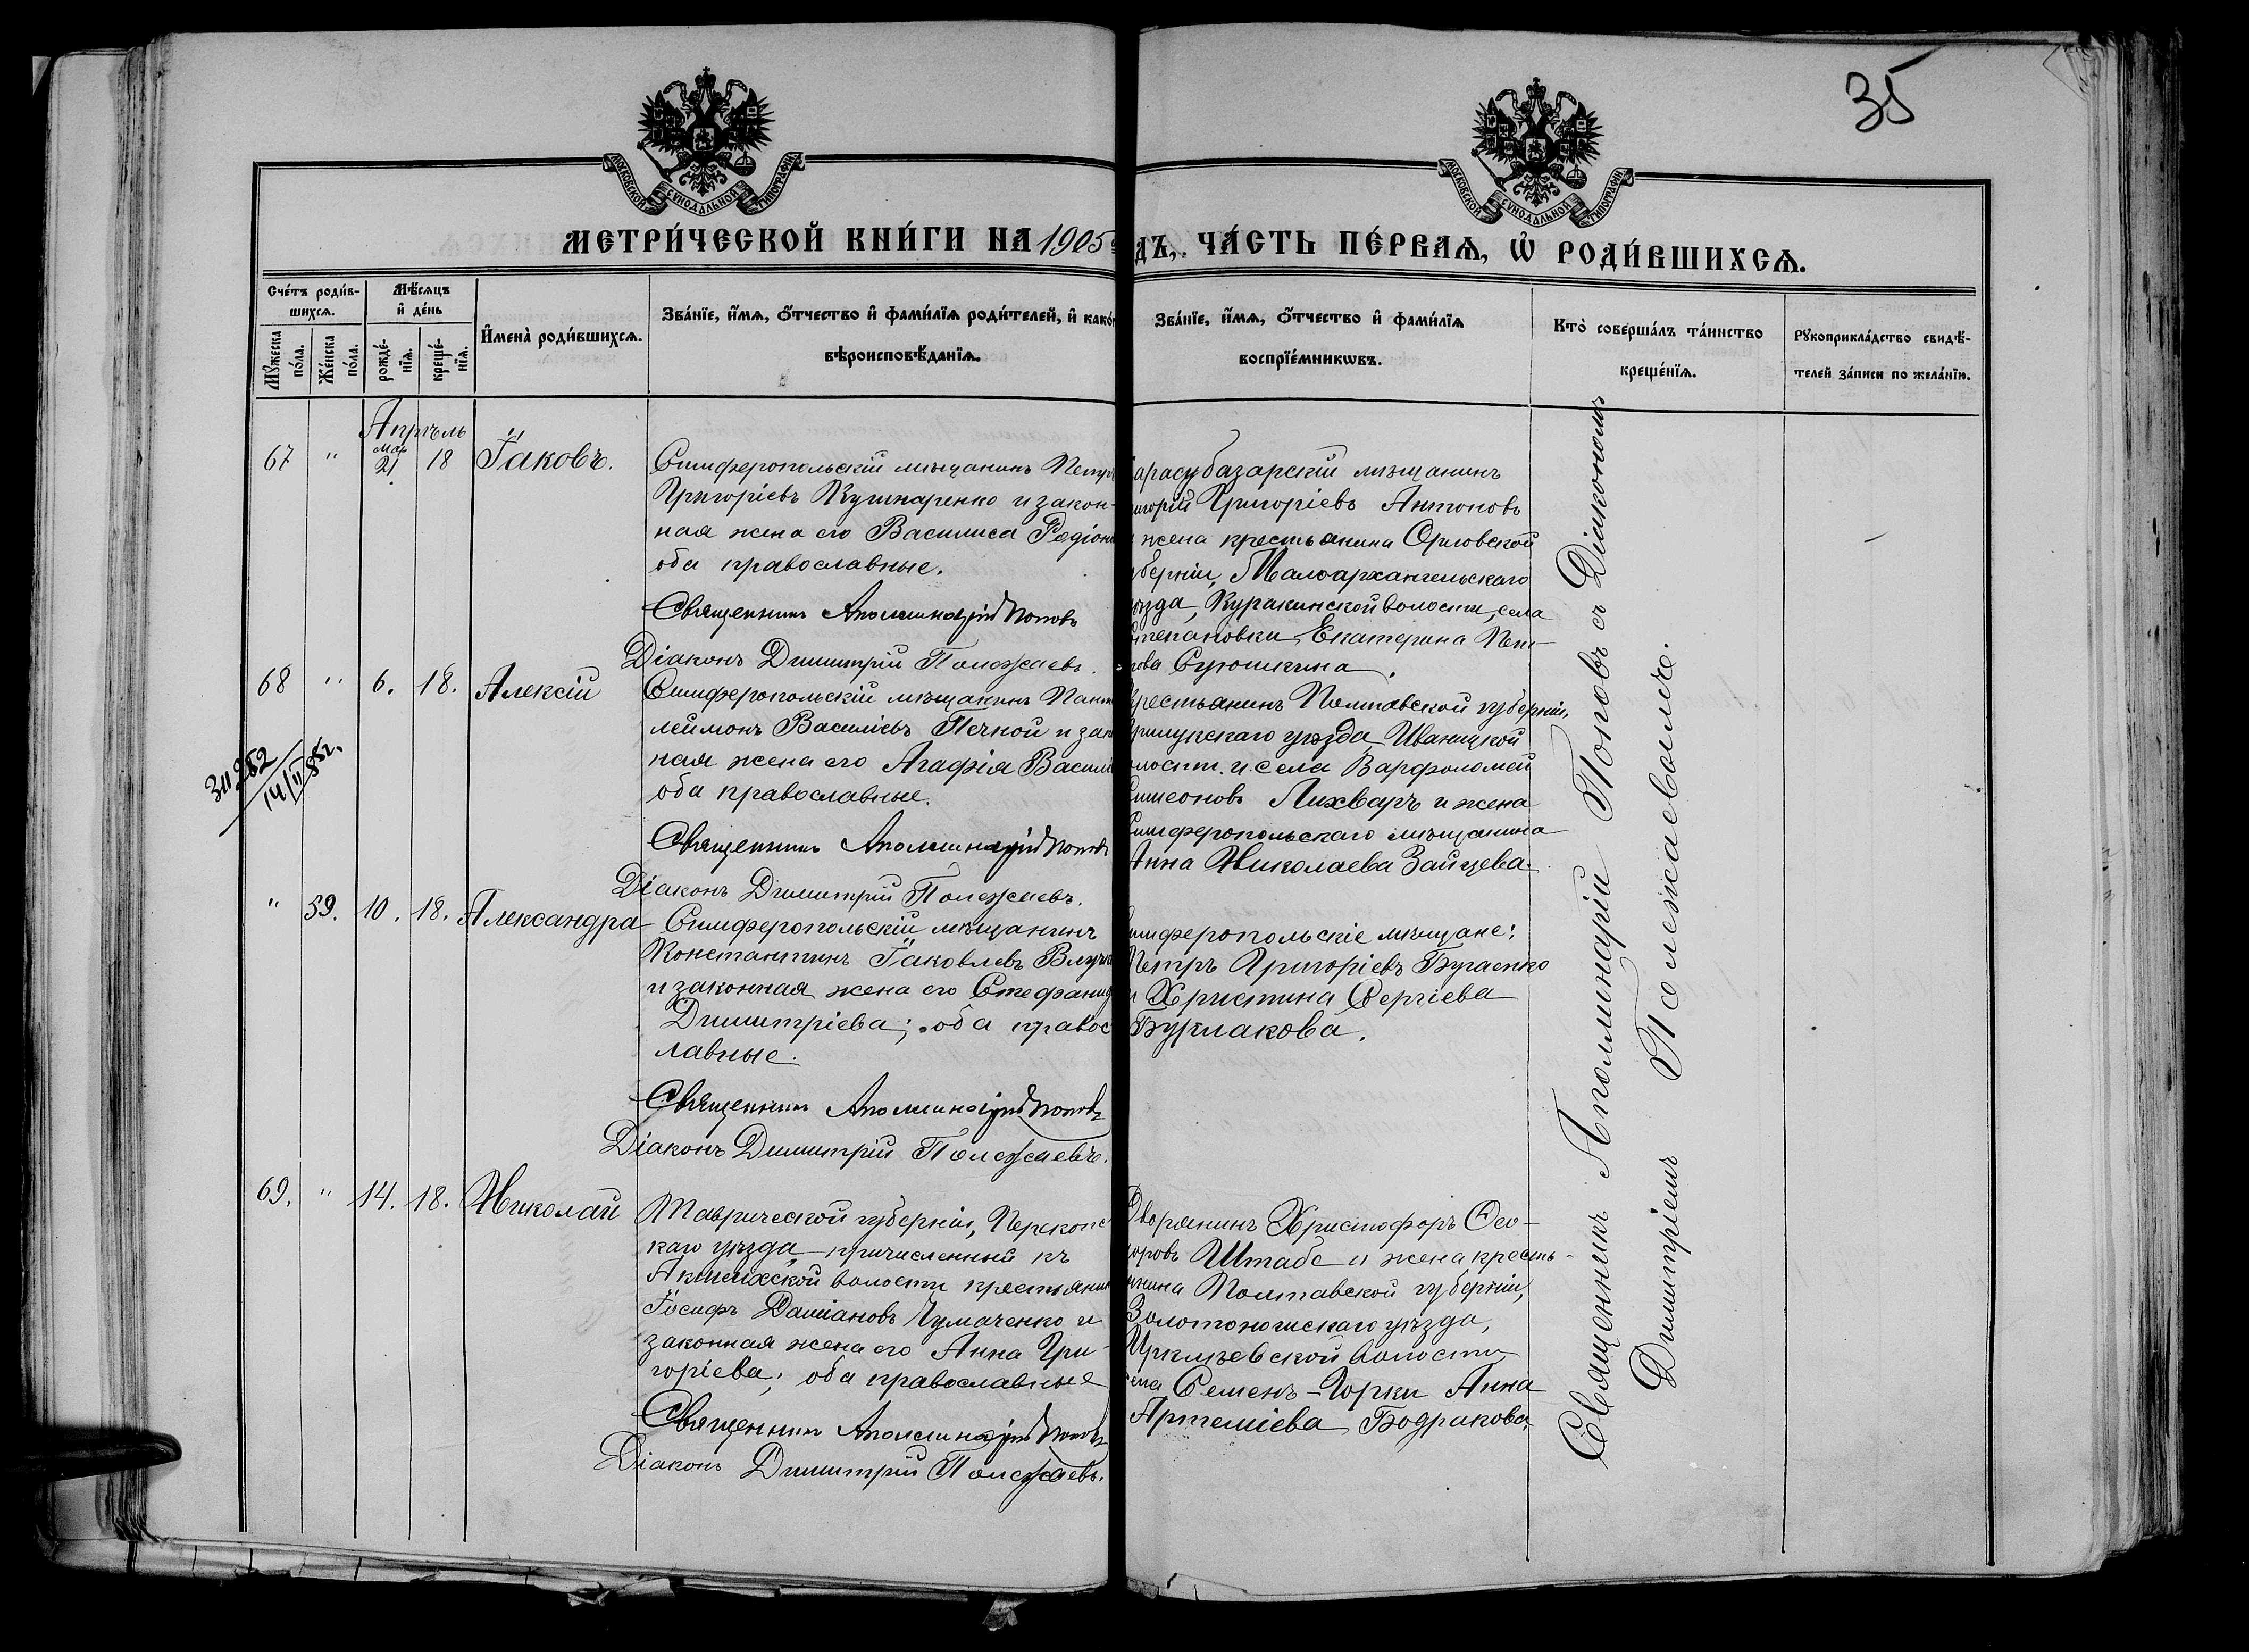 35
МОСКОВСКОЙ СѴНОДАЛЬНОЙ ТИПОГРАФІИ
МОСКОВСКОЙ СѴНОДАЛЬНОЙ ТИПОГРАФІИ
МЕТРИ́ЧЕСКОЙ КНИ́ГИ НА 1905
ДЪ, ЧА́СТЬ ПЕ́РВАѦ, Ѡ҆ РОДИ́ВШИХСѦ.
Сче́тъ роди́в-
шихсѧ.
Мѹ́жеска
по́ла.
Же́нска
по́ла.
Мѣ́сѧцъ
и҆ де́нь
рожде́-
нїѧ.
креще́-
нїѧ.
И҆мена̀ роди́вшихсѧ.
Зва́нїе, и҆́мѧ, ѻ҆́тчество и҆ фами́лїѧ роди́телей, и҆ како́
вѣроисповѣ́данїѧ.
Зва́нїе, и҆́мѧ, ѻ҆́тчество и҆ фами́лїѧ
воспрїе́мникѡвъ.
Кто̀ соверша́лъ та́инство
креще́нїѧ.
Рꙋкоприкла́дство свидѣ́-
телей за́писи по жела́нїю.
Апрѣль
67 " Мар 21 18 Іаковъ.
Симферопольскій мѣщанинъ Петръ
Григоріевъ Кушнаренко и закон-
ная жена его Василиса Родіон
оба православные.
Священникъ Аполлинарій Поповъ
Діаконъ Димитрій Полежаевъ.
арасубазарскій мѣщанинъ
игорій Григоріевъ Антоновъ
жена крестьянина Орловской
уберніи, Малоархангельскаго
ѣзда, Куракинской волости, села
Степановки Екатерина Пет-
рова Сурюшкина.
68 " 6. 18. Алексій
Симферопольскій мѣщанинъ Пант
леймонъ Василіевъ Печкой и зак
ная жена его Агафія Васил
оба православные.
Священникъ Аполлинарій Поповъ
Діаконъ Димитрій Полежаевъ.
крестьянинъ Полтавской губерніи,
Прилукскаго уѣзда, Иваницкой
олост. и села Варфоломей
Симеоновъ Лихваръ и жена
Симферопольскаго мѣщанина
Анна Николаева Зайцева.
" 59. 10. 18. Александра
Симферопольскій мѣщанинъ
Константинъ Іаковлевъ
и законная жена его Стефанид
Димитріева; оба правос
лавные.
Священникъ Аполлинарій Поповъ
Діаконъ Димитрій Полежаевъ.
имферопольскіе мѣщане:
Петръ Григоріевъ Бугаенко
и Христина Сергіева
Бурлакова.
69. " 14. 18. Николай
Таврической губерніи, Перекопс
каго уѣзда, причисленный къ
волости крестьянин
Іосифъ Даміановъ Чумаченко и
законная жена его Анна Гри-
горіева; оба православные
Священникъ Аполлинарій Поповъ
Діаконъ Димитрій Полежаевъ.
Дворянинъ Христофоръ Ѳео-
доровъ Штабе и жена кресть-
янина Полтавской губерніи,
Золотоношскаго уѣзда,
волости
села Семенъ-Горки Анна
Артеміева Бодракова.
Священникъ Аполлинарій Поповъ съ Діакономъ
Димитріемъ Полежаевымъ.